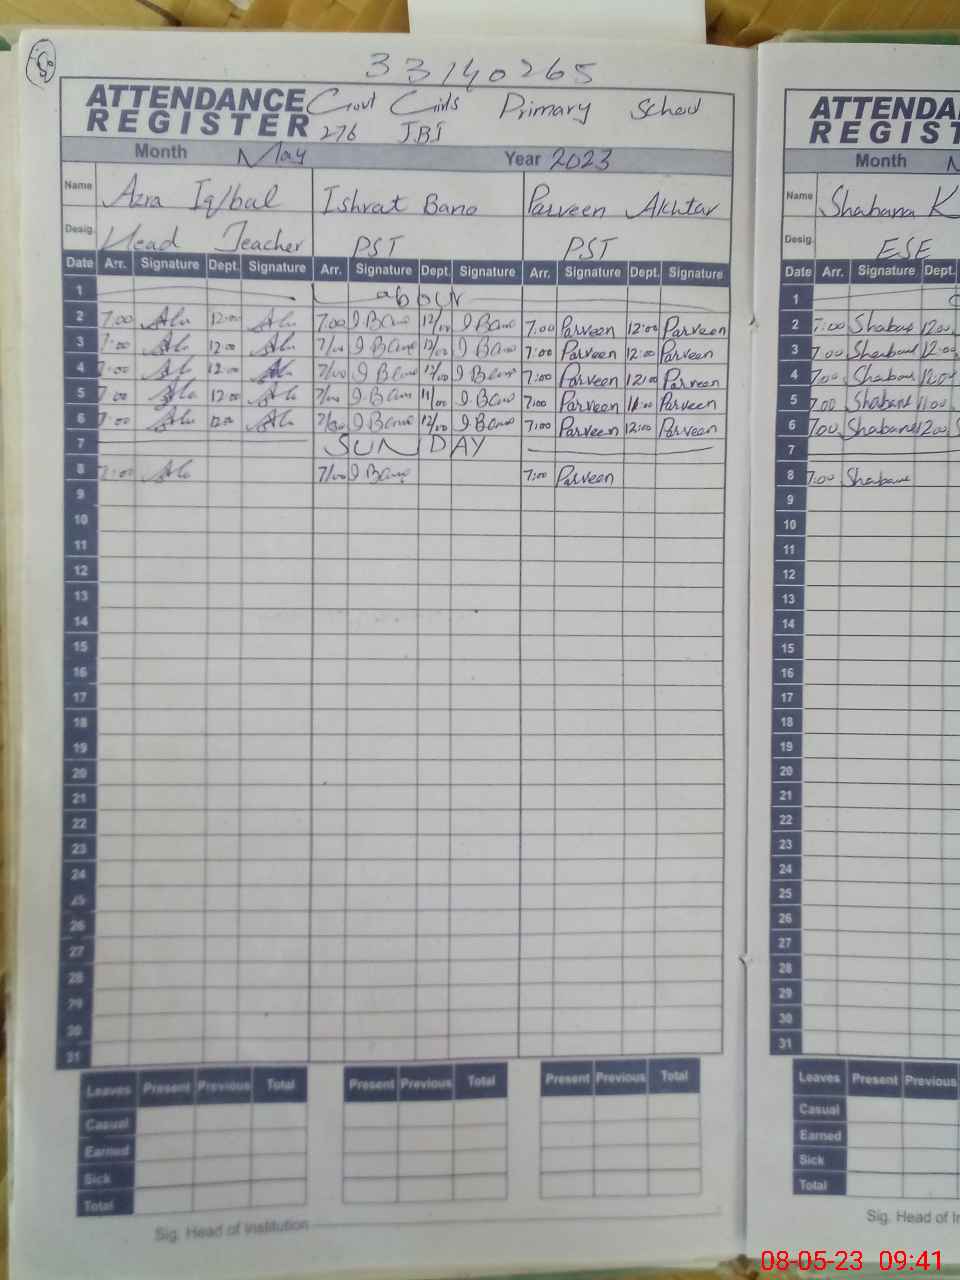 33140265
ATTENDANCE REGISTER Govt Girls Primary School
276 JBI
Month May Year 2023
Name Azra Iqbal Ishrat Bano Parveen Akhtar
Desig. Head Teacher PST PST
Date Arr. Signature Dept. Signature Arr. Signature Dept. Signature Arr. Signature Dept. Signature
1
2 7:00 12:00 7:00 I Bano 12/00 I Bano 7:00 Parveen 12:00 Parveen
3 7:00 12:00 7/00 I Bano 12/00 I Bano 7:00 Parveen 12:00 Parveen
4 7:00 12:00 7/00 I Bano 12/00 I Bano 7:00 Parveen 12:00 Parveen
5 7:00 12:00 7/00 I Bano 11/00 I Bano 7:00 Parveen 11:00 Parveen
6 7:00 12:00 7/00 I Bano 12/00 I Bano 7:00 Parveen 12:00 Parveen
7 SUN DAY
8 7:00 7/00 I Bano 7:00 Parveen
9
10
11
12
13
14
15
16
17
18
19
20
21
22
23
24
25
26
27
28
29
30
31
Leaves Present Previous Total Present Previous Total Present Previous Total
Casual
Earned
Sick
Total
Sig. Head of Institution
ATTENDA
REGIST
Month
Name Shabana K
Desig. ESE
Date Arr. Signature Dept.
1
2 7:00 Shabana 12:00
3 7:00 Shabana 12:00
4 7:00 Shabana 12:00
5 7:00 Shabana 11:00
6 7:00 Shabana 12:00
7
8 7:00 Shabana
9
10
11
12
13
14
15
16
17
18
19
20
21
22
23
24
25
26
27
28
29
30
31
Leaves Present Previous
Casual
Earned
Sick
Total
Sig. Head of In
08-05-23 09:41